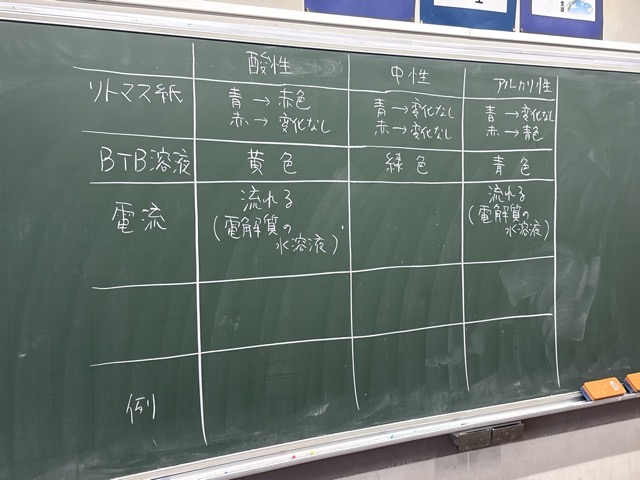 酸性 中性 アルカリ性
リトマス紙 青→赤色 青→変化なし 青→変化なし
赤→変化なし 赤→変化なし 赤→青色
BTB溶液 黄色 緑色 青色
電流 流れる 流れる
(電解質の (電解質の
水溶液) 水溶液)
例